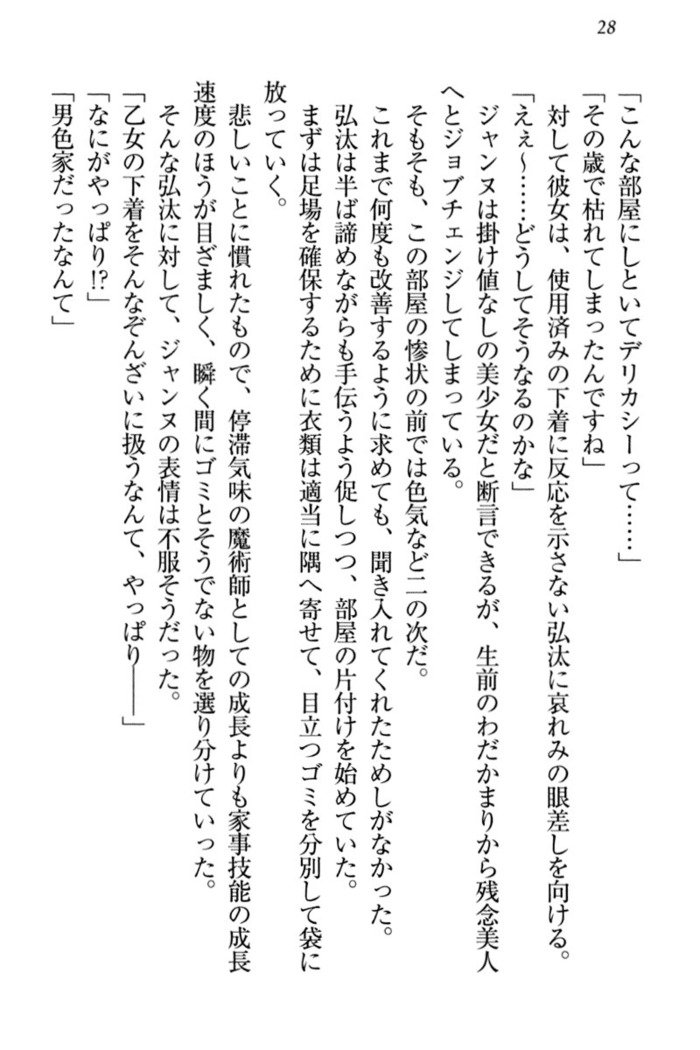 28
「こんな部屋にしといてデリカシーって……」
「その歳で枯れてしまったんですね」
対して彼女は、使用済みの下着に反応を示さない弘汰に哀れみの眼差しを向ける。
「えぇ～……どうしてそうなるのかな」
ジャンヌは掛け値なしの美少女だと断言できるが、生前のわだかまりから残念美人
へとジョブチェンジしてしまっている。
そもそも、この部屋の惨状の前では色気など二の次だ。
これまで何度も改善するように求めても、聞き入れてくれたためしがなかった。
弘汰は半ば諦めながらも手伝うよう促しつつ、部屋の片付けを始めていた。
まずは足場を確保するために衣類は適当に隅へ寄せて、目立つゴミを分別して袋に
放っていく。
悲しいことに慣れたもので、停滞気味の魔術師としての成長よりも家事技能の成長
速度のほうが目ざましく、瞬く間にゴミとそうでない物を選り分けていった。
そんな弘汰に対して、ジャンヌの表情は不服そうだった。
「乙女の下着をそんなぞんざいに扱うなんて、やっぱり――」
「なにがやっぱり!?」
「男色家だったなんて」